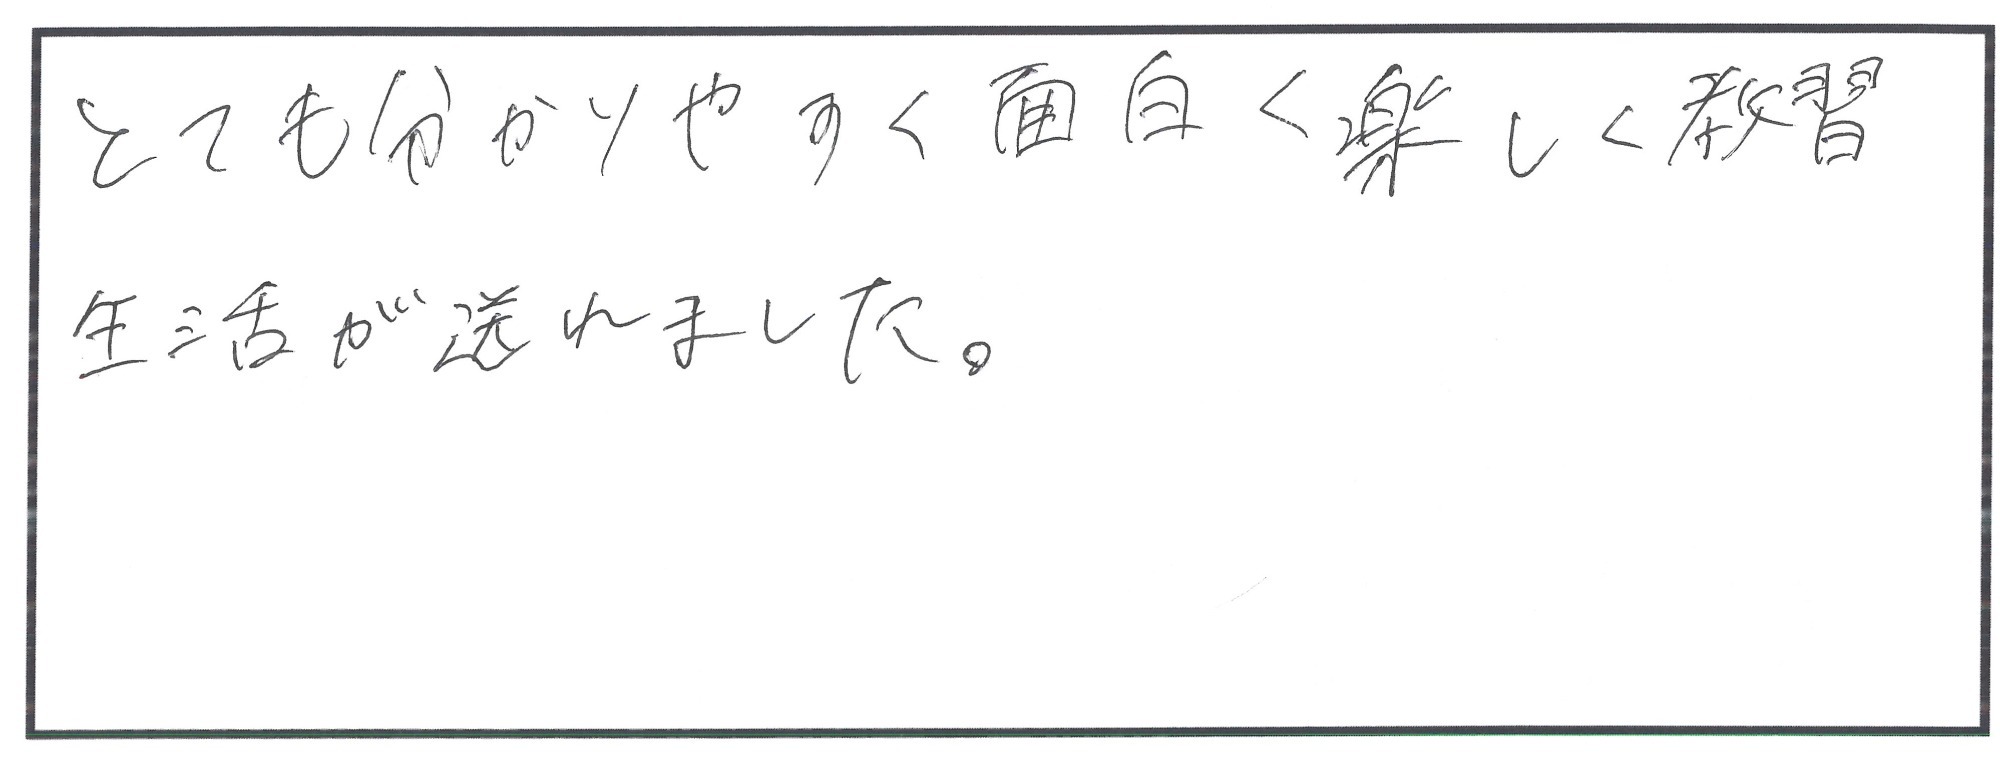 とても分かりやすく面白く楽しく教習
生活が送れました。